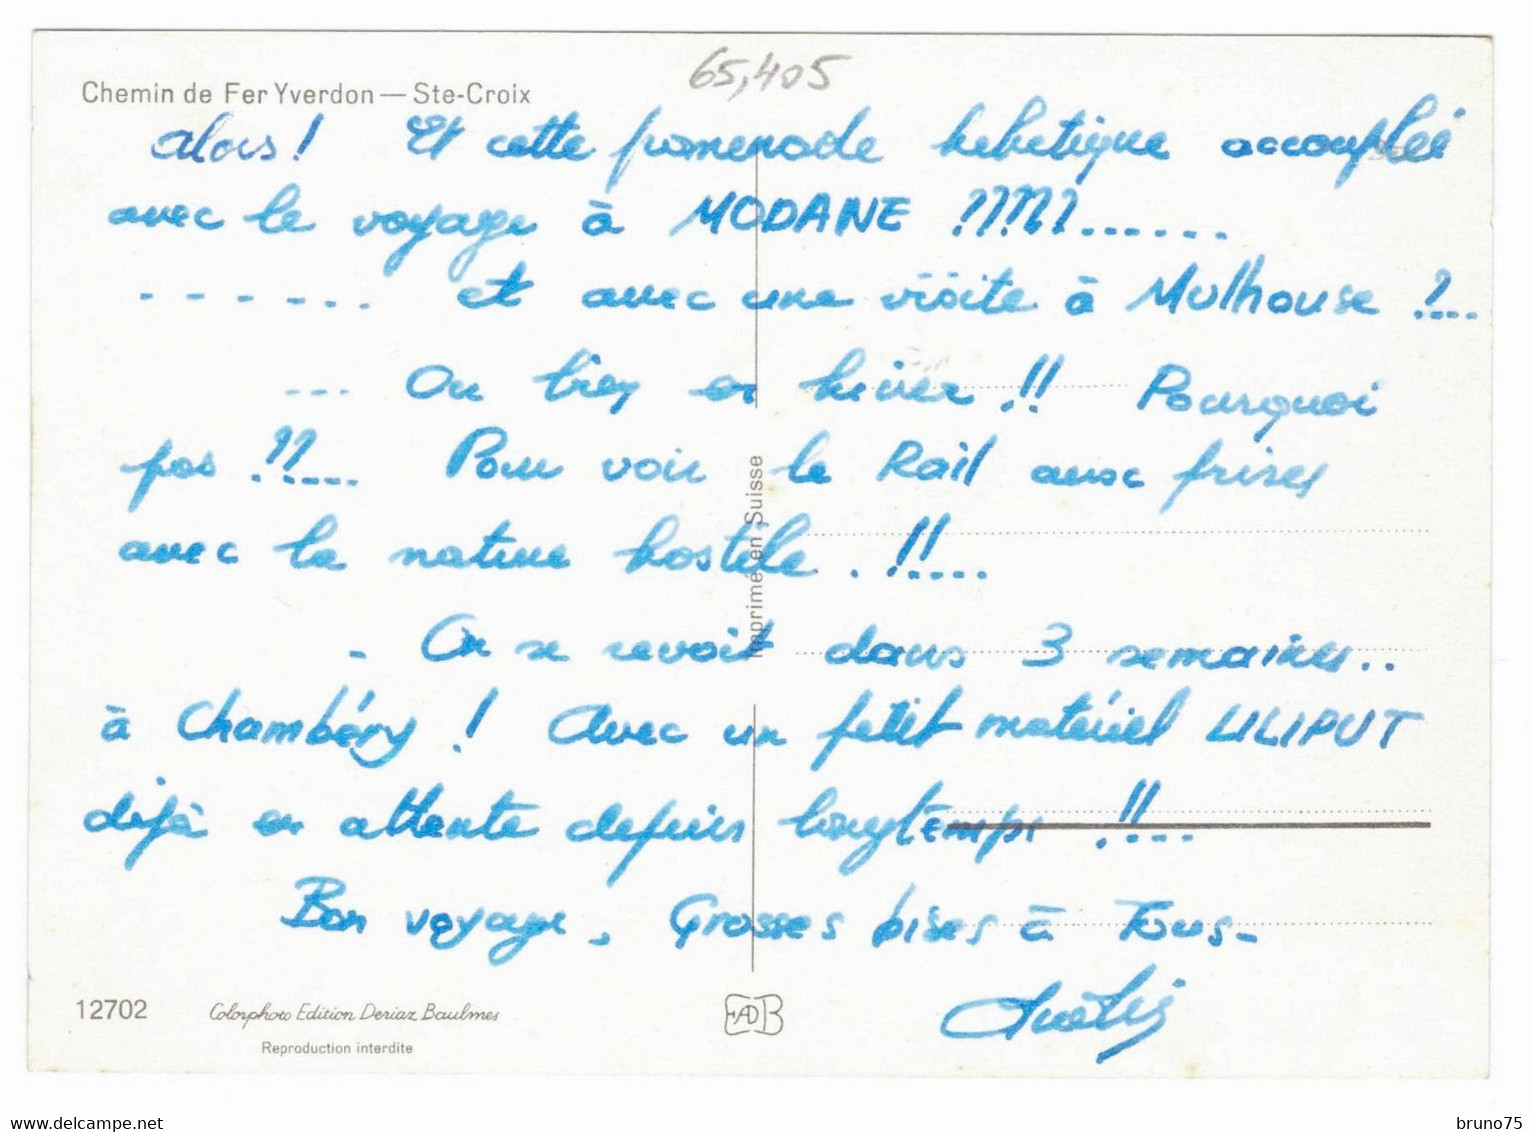 65,405
Chemin de Fer Yverdon — Ste-Croix
Alors! Et cette promenade helvetique accouplée
avec le voyage à MODANE ?????......
- - - - - - et avec une visite à Mulhouse ?....
--- Ou bien en hiver !! Pourquoi
pas !??.... Pour voir le Rail aux prises
avec la nature hostile . !!....
- On se revoit dans 3 semaines..
à Chambéry ! Avec un petit matériel LILIPUT
déjà en attente depuis longtemps !!...
Bon voyage. Grosses bises à Tous-
Imprimé en Suisse
12702
Colorphoto Edition Deriaz Baulmes
Reproduction interdite
EADB
bruno75
www.delcampe.net